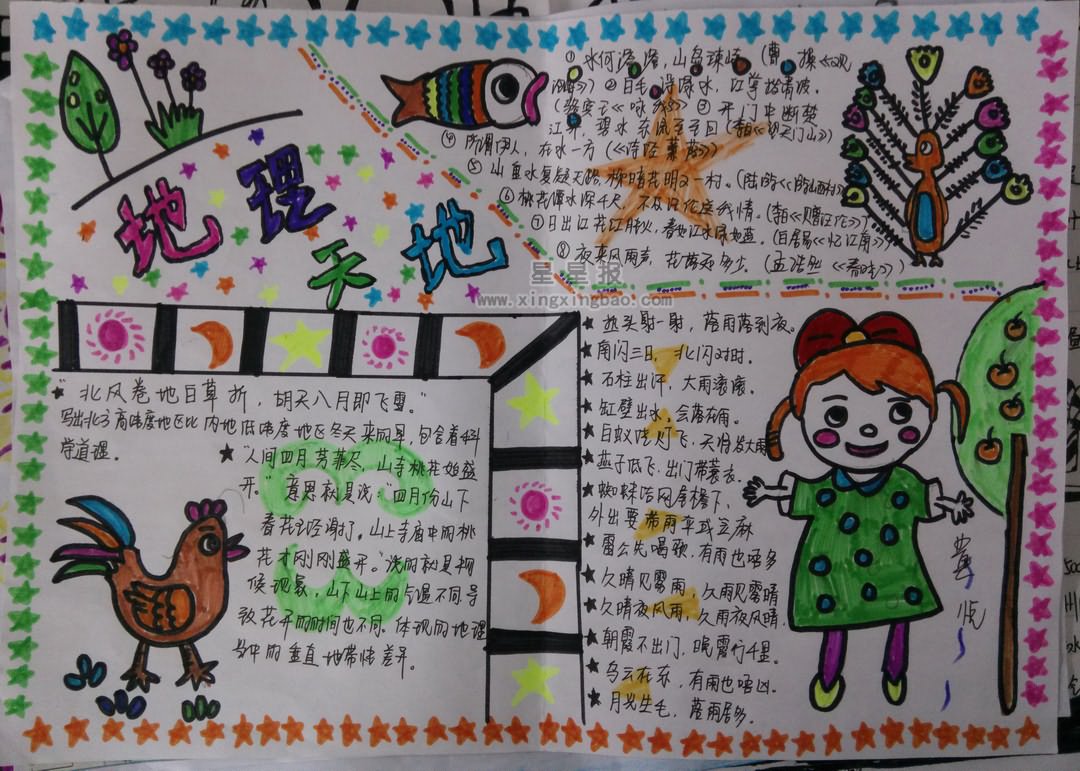 地理天地
① 水何澹澹，山岛竦峙。(曹操《观
沧海》) ② 白毛浮绿水，红掌拨清波。
(骆宾王《咏鹅》) ③ 天门中断楚
江开，碧水东流至此回 (李白《望天门山》)
④ 所谓伊人，在水一方 (《诗经 蒹葭》)
⑤ 山重水复疑无路，柳暗花明又一村。(陆游《游山西村》)
⑥ 桃花潭水深千尺，不及汪伦送我情。(李白《赠汪伦》)
⑦ 日出江花红胜火，春来江水绿如蓝。(白居易《忆江南》)
⑧ 夜来风雨声，花落知多少。(孟浩然《春晓》)
星星报
www.xingxingbao.com
"北风卷地白草折，胡天八月即飞雪。"
写出北方高纬度地区比内地低纬度地区冬天来的早，包含着科
学道理。
"人间四月芳菲尽，山寺桃花始盛
开。"意思就是说"四月份山下
春花已经谢了。山上寺庙中的桃
花才刚刚盛开。"说的就是物
候现象，山下山上的气温不同导
致花开的时间也不同。体现的地理
学中的垂直地带性差异。
日头射一射，落雨落到夜。
南闪三日，北闪对时。
石柱出汗，大雨滚滚。
缸壁出水，会落
白蚁 灯飞，天将发大雨
燕子低飞，出门带蓑衣。
蜘蛛 网屋檐下，
外出要带雨伞或
雷公先唱歌，有雨也唔多
久晴见雾雨，久雨见雾晴
久晴夜风雨，久雨夜风晴.
朝霞不出门，晚霞行千里。
乌云在东，有雨也唔凶。
月光生毛，落雨居多。